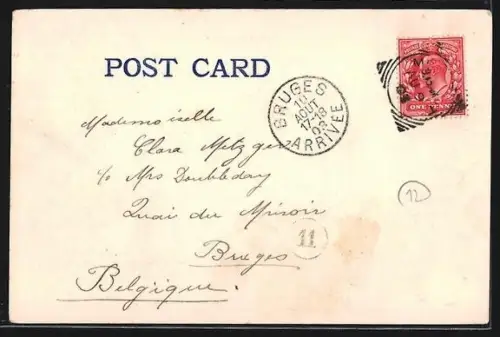 POST CARD
BRUGES
10
AOUT
17-18
03
ARRIVÉE
ONE PENNY
Mademoiselle
Clara Metzger
c/o Mrs Doubleday
Quai du Miroir
Bruges
Belgique.
11
12